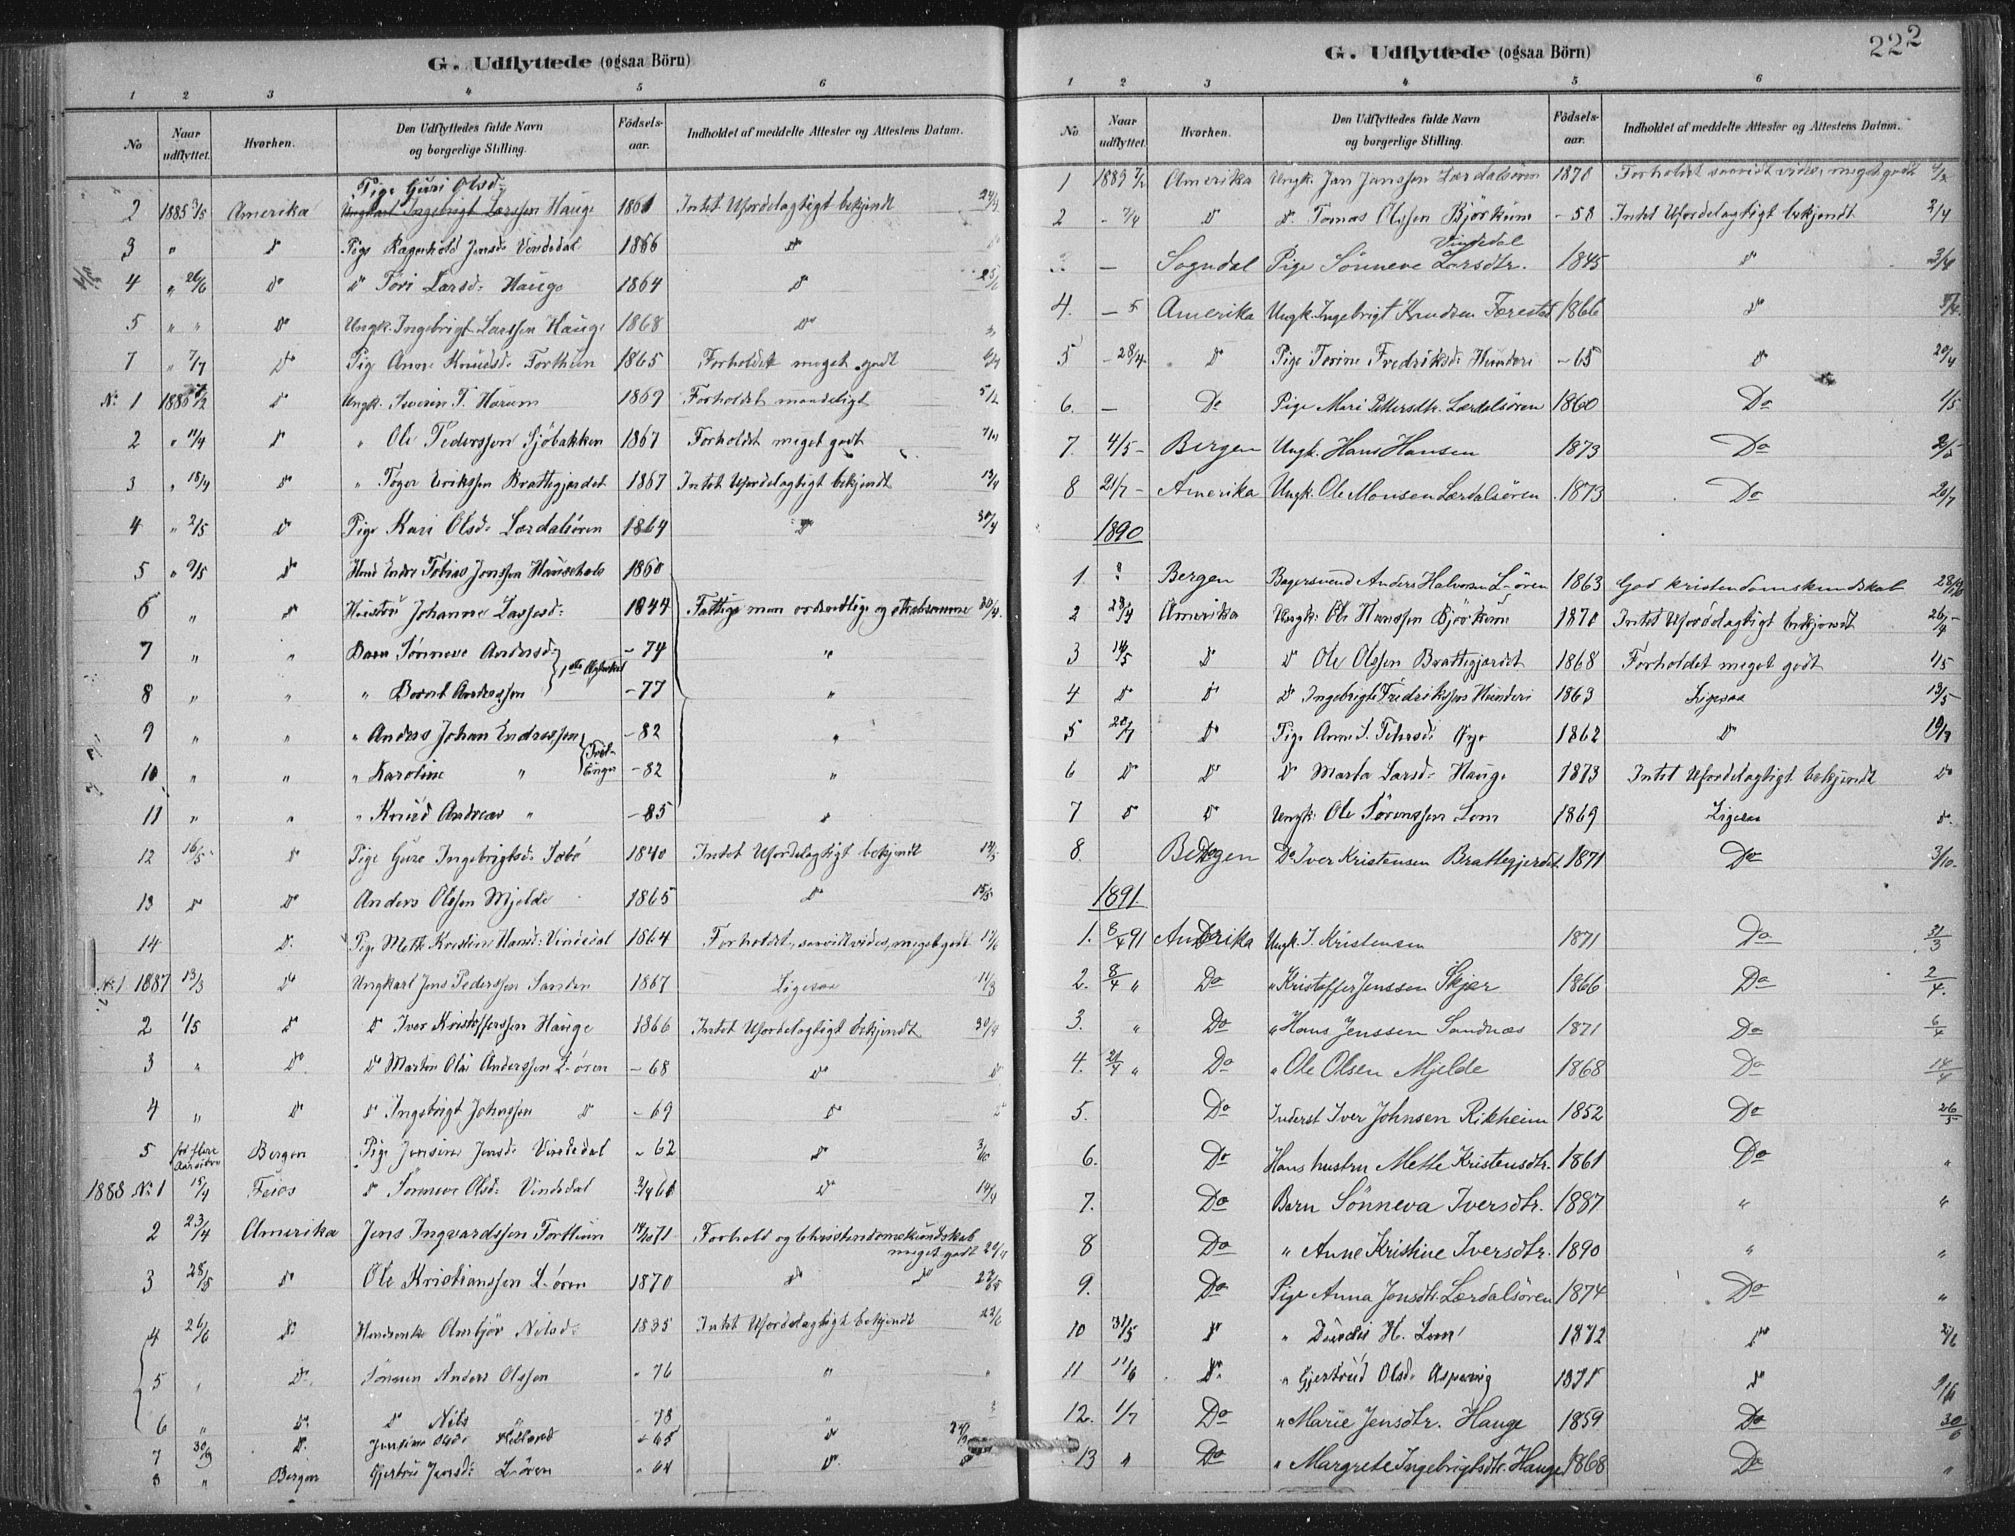 G. Udflyttede (ogsaa Börn)
1 2 3 4 5 6
No Naar udflyttet. Hvorhen. Den Udflyttedes fulde Navn og borgerlige Stilling. Födsels-aar. Indholdet af meddelte Attester og Attestens Datum.
Pige Guri Olsd:
2 1885 Amerika Ungkarl Ingebrigt Larssen Hauge 1861 Intet Ufordelagtigt bekjendt
3 " Do Pige Ragnhild Jensd: Vindedal 1866 Do
4 " 26/6 Do Do Tori Larsd: Hauge 1864 Do
5 " " Do Ungk. Ingebrigt Larssen Hauge 1868 Do
7 " 7/7 Do Pig Anne Knudsd: Forthun 1865 Forholdet meget godt
No 1 1886 Do Ungk. Severin T. Harum 1869 Forholdet maadeligt 5/2
2 " 11/4 Do " Ole Pederssen Sjöbakken 1867 Forholdet meget godt
3 " 18/4 Do " Töger Erikssen Brattegjerdet 1867 Intet Ufordelagtigt bekjendt 13/4
4 " 2/5 Do Pige Kari Olsd: Lærdalsören 1864 Do 30/4
5 " 9/5 Do Endre Tobias Jonssen 1860
6 " Do Hustru Johanne Lassesd: 1844 Fattige men ordentlige og strebsomme 30/4.
7 " " Barn Sönneve Andersd: - 74 "
8 " " " Bernt Anderssen 1ste - 77 "
9 " " " Anders Johan Endressen - 82 "
10 " " " Karoline " Tvillinger - 82 "
11 " " " Knud Andreas " - 85 "
12 16/5 Do Pige Guro Ingebrigtsd: Sæbö 1840 Intet Ufordelagtigt bekjendt 14/5
13 Do Do Anders Olssen Mjelde 1865 Do 15/5
14 Do Pige Mette Kristine Hansd: Vindedal 1864 Forholdet, saavidt vides, meget godt
No 1 1887 13/3 Do Ungkarl Jens Pederssen Sanden 1867 Ligesaa 11/3
2 1/5 Do Do Iver Kristofferssen Hauge 1866 Intet Ufordelagtigt bekjendt 30/4
3 " Do Do Martin Olai Anderssen L-ören - 68 Do Do
4 " Do Do Ingebrigt Johnssen Do - 69 Do Do
5 for flere Aar siden Bergen Pige Jensine Jensd: Vindedal - 62 Do
1888 No 1 15/4 Feios Do Sönneve Olsd: Vindedal Do 14/4
2 23/4 Amerika Jens Ingvardssen Forthun Forhold og Christendomskundskab
meget godt
3 28/5 Do Ole Kristianssen L-ören 1870 Do Do
4 26/6 Do Olmbjör Nilsd: 1835 Intet Ufordelagtigt bekjendt
5 " Do Sönnen Anders Olssen - 76 " "
6 " Do Do Nils - 78 "
7 30/9 Do Jensine Olsd: - 65 Do
8 " Bergen Gjertru Jensd: L-ören - 64 Do Do
222
G. Udflyttede (ogsaa Börn)
1 2 3 4 5 6
No Naar udflyttet. Hvorhen. Den Udflyttedes fulde Navn og borgerlige Stilling. Födsels-aar. Indholdet af meddelte Attester og Attestens Datum.
1 1889 Amerika Ungk. Jan Janssen Lærdalsören 1870 Forholdet saavidt vides, meget godt
2 - 7/4 Do Do Tomas Olssen Björkum - 58 Intet Ufordelagtigt bekjendt 2/4
Vindedal
3. - Sogndal Pige Sönneve Larsdtr. 1845 Do 3/4
4. - 5 Amerika Ungk. Ingebrigt Knudsen Færestad 1866 Do
5 - 28/4 Do Pige Torine Fredriksd: Hunderi - 65 Do 20/4
6. - Do Pige Mari Pettersdtr. Lærdalsören 1860 Do 1/5
7. 4/5 - Bergen Ungk. Hans Hansen 1873 Do 2/5
8 21/7 - Amerika Ungk. Ole Monsen Lærdalsören 1873 Do 20/7
1890
1. ? Bergen Bagersvend Anders Halvorsen L-ören 1863 God kristendomskundskab
2 23/4 Amerika Ungk. Ole Hanssen Björkum 1870 Intet Ufordelagtigt bekjendt 26/4
3 14/5 Do Do Ole Olssen Brattegjerdet 1868 Forholdet meget godt 1/5
4 Do Do Do Ingebrigt Fredrikssen Hunderi 1863 Ligesaa 13/5
5 20/7 Do Pige Anne S. Pehrsd: Öye 1862 Do
6 Do Do Do Marta Larsd: Hauge 1873 Intet Ufordelagtigt bekjendt Do
7 Do Do Ungk: Ole Sörenssen Lom 1869 Ligesaa Do
8. Bergen Do Iver Kristensen Brattegjerdet 1871 Do 3/10.
1891.
1. 8/4 91 Amerika Ungk. J. Kristensen 1871 Do 31/3
2. 8/4 " Do " Kristoffer Jenssen Skjær 1866 Do 2/4.
3. " Do " Hans Jenssen Sandnæs 1871 Do 6/4
4. 21/4 " Do " Ole Olsen Mjelde 1868 Do 14/4
5. Do Inderst Iver Johnsen Rikheim 1852 Do 26/5
6. Do Hans hustru Mette Kristensdtr. 1861 Do "
7. Do Barn Sönneva Iversdtr. 1887 " "
8 Do " Anne Kristine Iversdtr. 1890 " "
9. Do Pige Anna Jonsdtr. Lærdalsören 1874 Do "
10 31/5 Do " Durdei H. Lom 1872 Do
11 11/6 Do " Gjertrud Olsd: Aspevig Do
12. 1/7 Do " Marie Jensdtr. Hauge 1859 Do 30/6
13 " Do " Margrete Ingebrigtsdtr. Hauge 1868 Do "